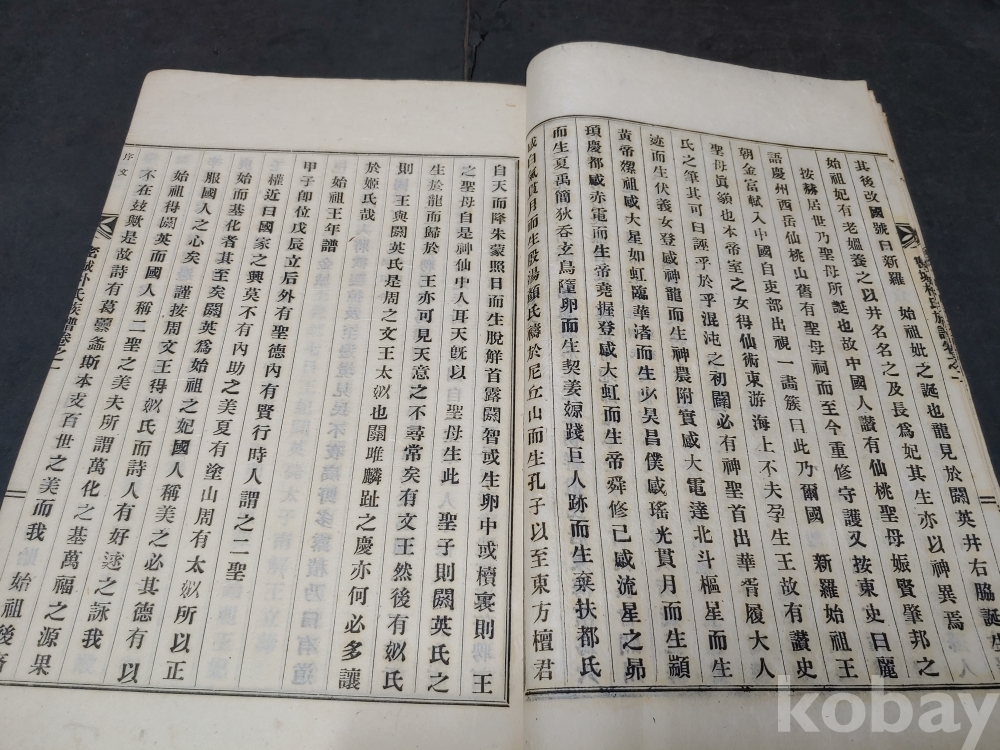 其後改國號曰新羅 始祖妣之誕也龍見於閼英井右脇誕生
始祖妃有老嫗養之以井名名之及長爲妃其生亦以神異焉
按蘇居世乃聖母所誕也故中國人讃有仙桃聖母娠賢肇邦之
語慶州西岳仙桃山舊有聖母祠而至今重修守護又按東史曰麗
朝金富軾入中國自吏部出視一畵簇曰此乃爾國 新羅始祖王
聖母眞領也本帝室之女得仙術東游海上不夫孕生王故有讃史
氏之筆其可曰誣乎於乎混沌之初闢必有神聖首出華胥履大人
迹而生伏義女登感神龍而生神農附實感大電遶北斗樞星而生
黃帝嫘祖感大星如虹臨華渚而生必昊昌僕感瑤光貫月而生顓
頊慶都感赤電而生帝堯握登感大虹而生帝舜修己感流星之昴
而生夏禹簡狄吞玄鳥隨卵而生契姜嫄踐巨人跡而生棄扶都氏
感白氣貫月而生殷湯顔氏禱於尼丘山而生孔子以至東方檀君
自天而降朱蒙照日而生脫鮮首露閼智或生卵中或櫝裏則 王
之聖母自是神仙中人耳天旣以 聖母生此 聖子則閼英氏之
生於龍而歸於 王亦可見天意之不尋常矣有文王然後有姒氏
則 王與閼英氏是周之文王太姒也關雎麟趾之慶亦何必多讓
於姬氏哉
始祖王年譜
甲子卽位戊辰立后外有聖德內有賢行時人謂之二聖
權近曰國家之興莫不有內助之美夏有塗山周有太姒所以正
始而基化者其至矣閼英爲始祖之妃國人稱美之必其德有以
服國人之心矣 謹按周文王得姒氏而詩人有好逑之詠我
始祖得閼英而國人稱二聖之美夫所謂萬化之基萬福之源果
不在玆歟是故詩有葛藟螽斯本支百世之美而我 始祖後裔
序文
密城朴氏族譜卷之一
kobay